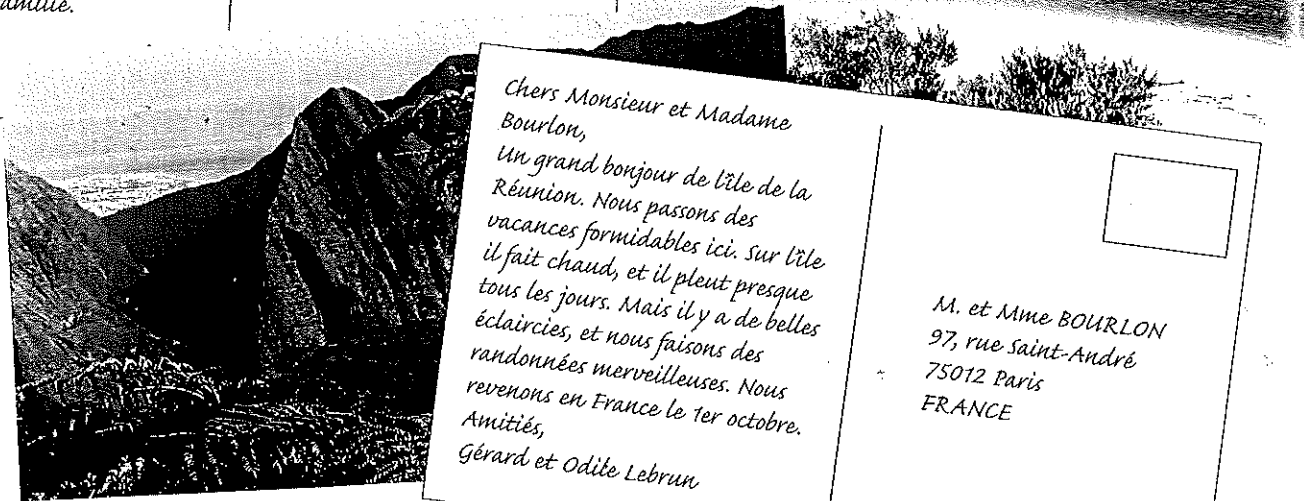 famille.
Chers Monsieur et Madame
Bourlon,
Un grand bonjour de l'île de la
Réunion. Nous passons des
vacances formidables ici. Sur l'île
il fait chaud, et il pleut presque
tous les jours. Mais il y a de belles
éclaircies, et nous faisons des
randonnées merveilleuses. Nous
revenons en France le 1er octobre.
Amitiés,
Gérard et Odile Lebrun
M. et Mme BOURLON
97, rue Saint-André
75012 Paris
FRANCE